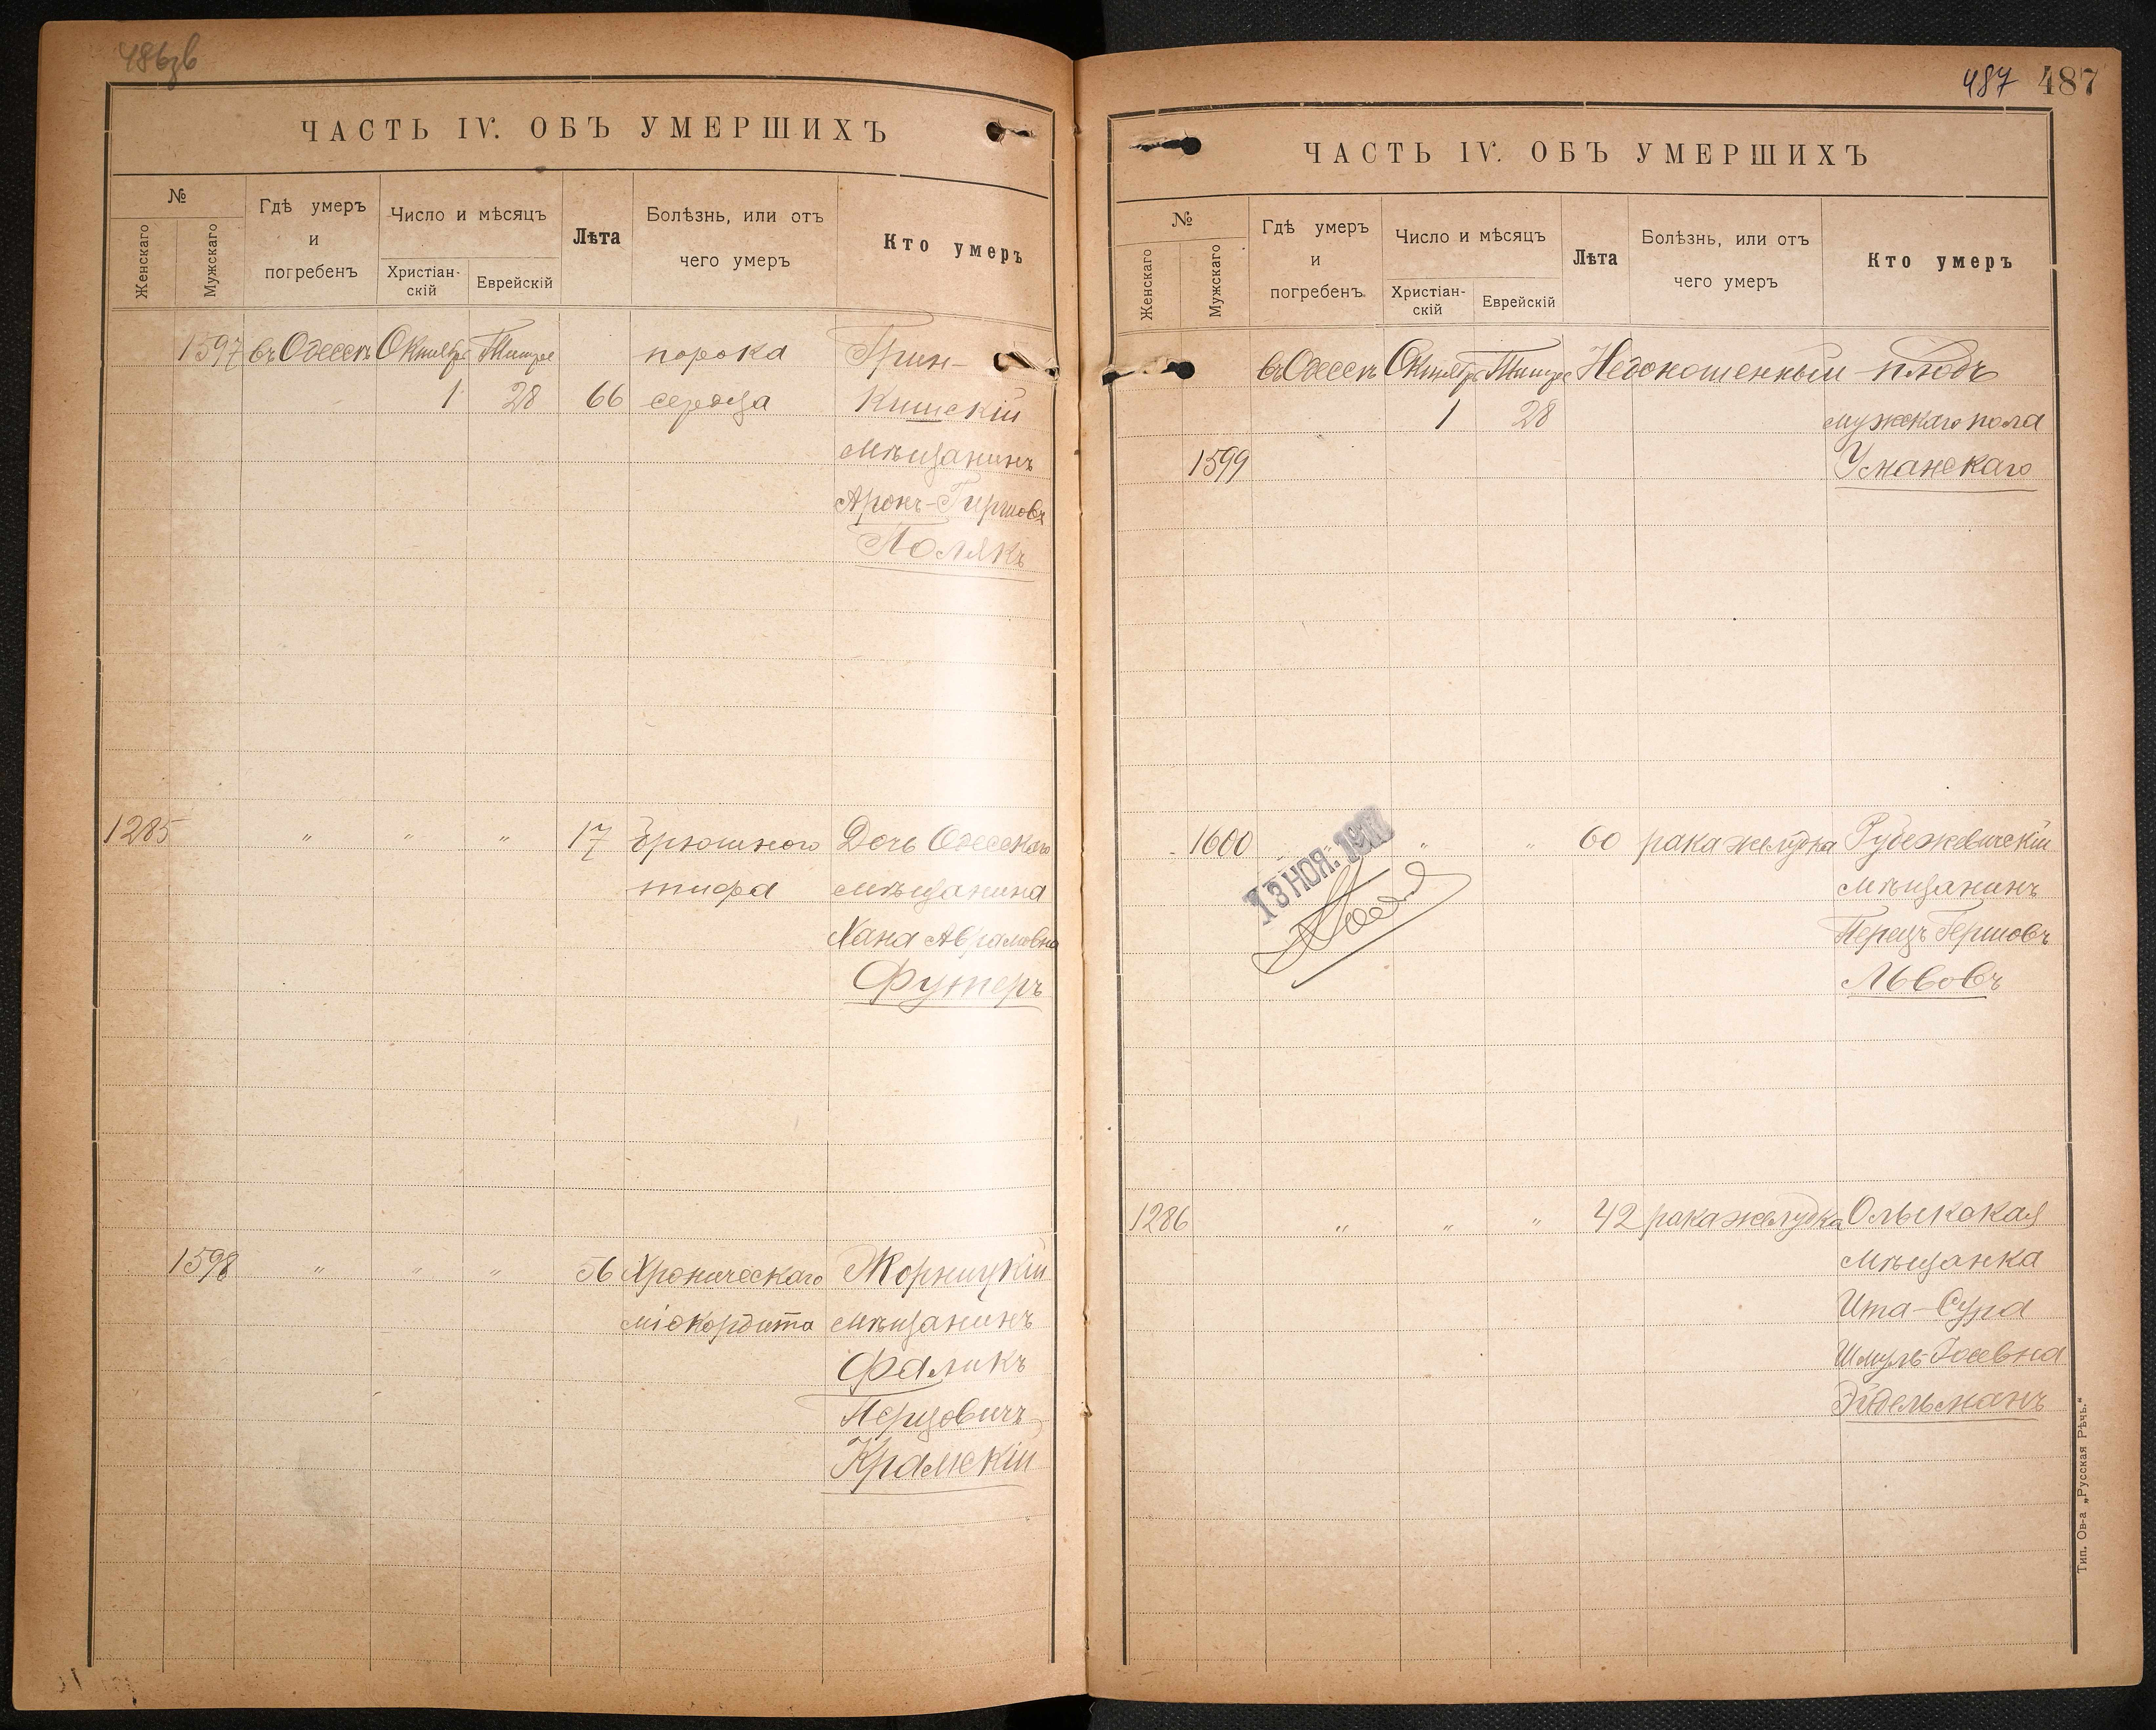 486зв
ЧАСТЬ IV. ОБЪ УМЕРШИХЪ
№
Женскаго
Мужскаго
Гдѣ умеръ
и
погребенъ
Число и мѣсяцъ
Христіан-
скій
Еврейскій
Лѣта
Болѣзнь, или отъ
чего умеръ
Кто умеръ
1597 въ Одессѣ Октября Тишрее порока Грин-
1 28 66 сердца Кишскій
мѣщанинъ
Аронъ-Гиршовъ
Полякъ
1285 " " " 17 брюшного Дочь Одесскаго
тифа мѣщанина
Хана Аврамовна
Футеръ
1598 " " " 56 Хроническаго Жорницкій
міокардита мѣщанинъ
Фаликъ
Перцовичъ
Крамскій
487 487
ЧАСТЬ IV. ОБЪ УМЕРШИХЪ
№
Женскаго
Мужскаго
Гдѣ умеръ
и
погребенъ
Число и мѣсяцъ
Христіан-
скій
Еврейскій
Лѣта
Болѣзнь, или отъ
чего умеръ
Кто умеръ
въ Одессѣ Октября Тишрее Недоношенный плодъ
1 28 мужскаго пола
1599 Уманскаго
1600 " " " 60 рака желудка Рубежевичскій
13 НОЯ.
мѣщанинъ
Перецъ Гершовъ
Львовъ
1286 " " " 42 рака желудка Олыкская
мѣщанка
Ита-Сура
Шмуль-Іосевна
Эйдельманъ
Тип. Ов-а „Русская Рѣчь."